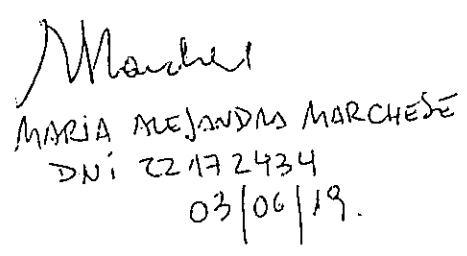 Marchese
MARIA ALEJANDRA MARCHESE
DNi 22172434
03/06/19.